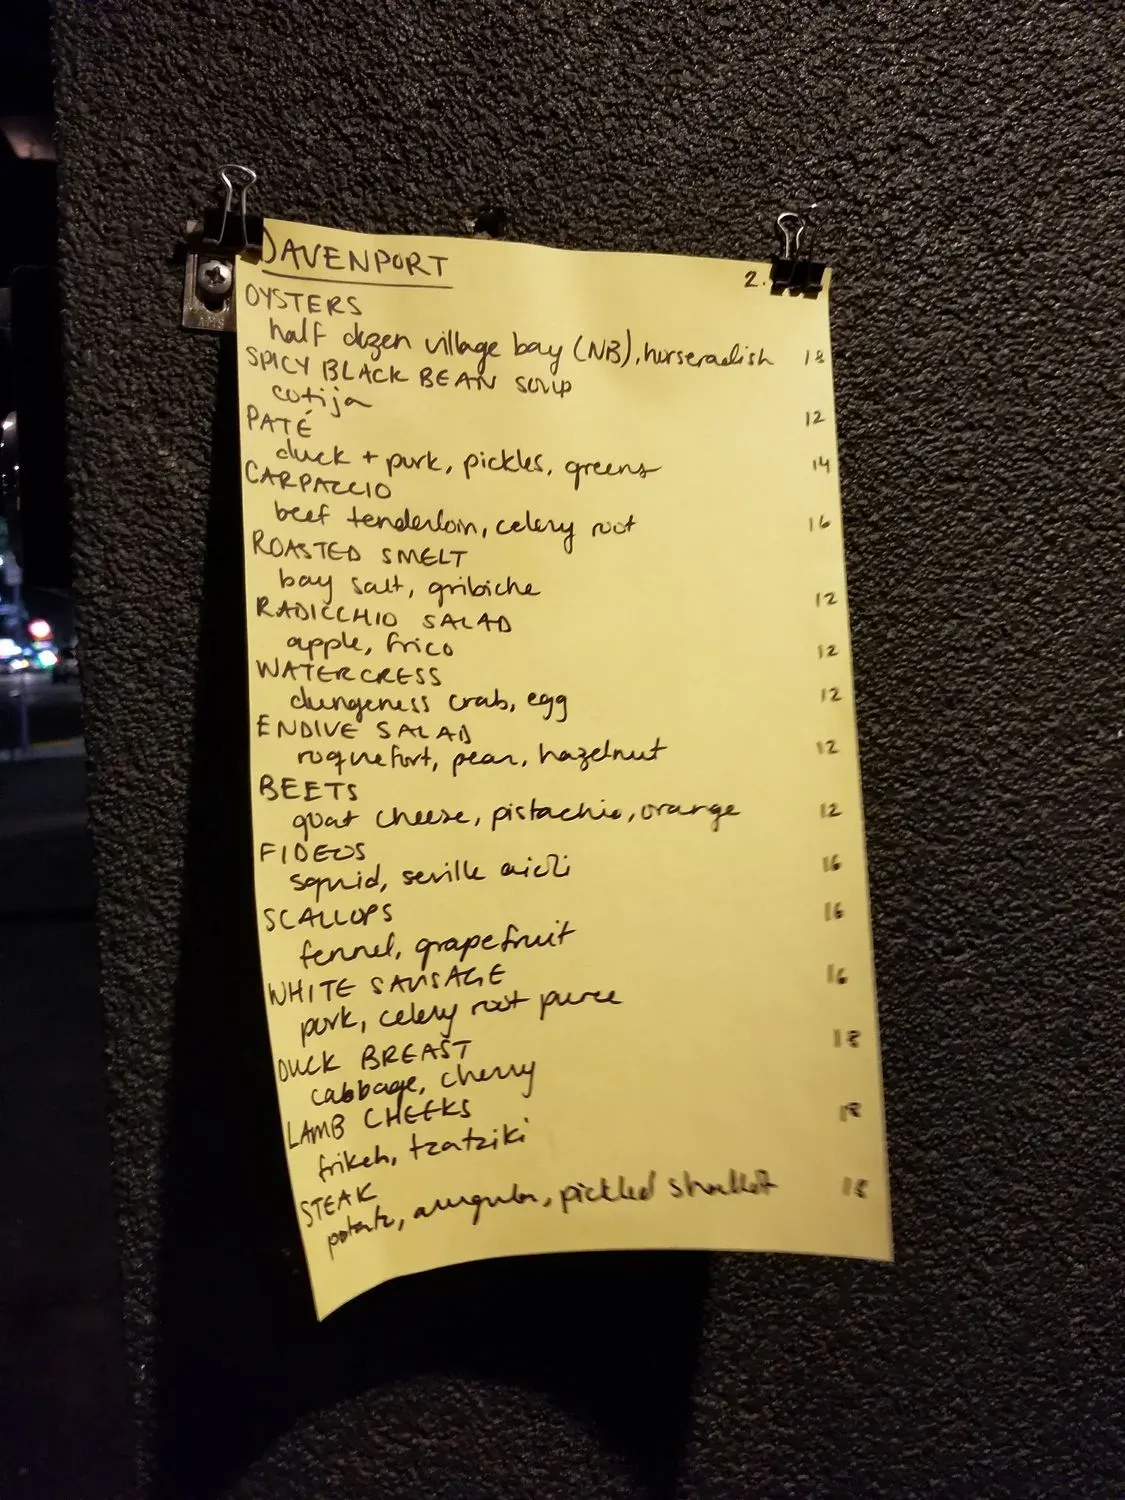 DAVENPORT 2.
OYSTERS
half dozen village bay (NB), horseradish 18
SPICY BLACK BEAN SOUP
cotija 12
PATÉ
duck + pork, pickles, greens 14
CARPACCIO
beef tenderloin, celery root 16
ROASTED SMELT
bay salt, gribiche 12
RADICCHIO SALAD
apple, frico 12
WATERCRESS
dungeness crab, egg 12
ENDIVE SALAD
roquefort, pear, hazelnut 12
BEETS
goat cheese, pistachio, orange 12
FIDEOS
squid, seville aioli 16
SCALLOPS
fennel, grapefruit 16
WHITE SAUSAGE
pork, celery root puree 16
DUCK BREAST
cabbage, cherry 18
LAMB CHEEKS
frikeh, tzatziki 18
STEAK
potato, arugula, pickled shallot 18